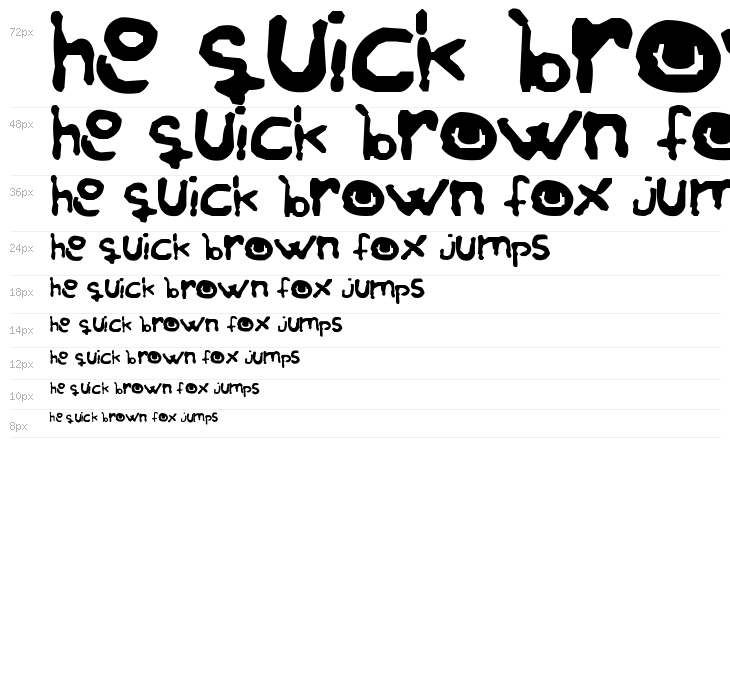 72px he quick bro
48px he quick brown fo
36px he quick brown fox jum
24px he quick brown fox jumps
18px he quick brown fox jumps
14px he quick brown fox jumps
12px he quick brown fox jumps
10px he quick brown fox jumps
8px he quick brown fox jumps